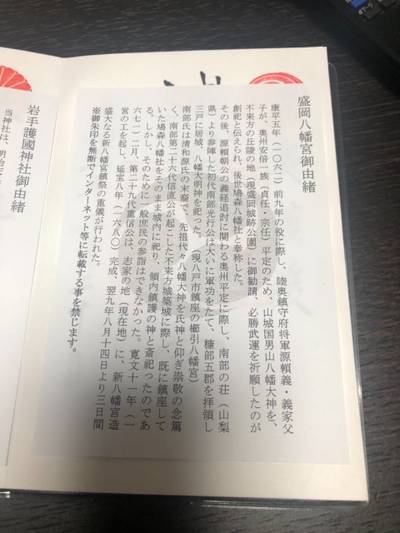 盛岡八幡宮御由緒
康平五年(一〇六二)前九年の役に際し、陸奥鎮守府将軍源頼義・義家父
子が、奥州安倍一族(貞任・宗任)平定のため、山城国男山八幡大神を、
不来方の丘陵の地(現盛岡城跡公園)に御勧請、必勝武運を祈願したのが
創祀と伝えられ、後世鳩森八幡社と奉称した。
その後、源頼朝公の義経追討に関わる奥州平定に際し、南部の荘(山梨
県)より参陣した初代南部光行公は大いに軍功をたて、糠部五郡を拝領し
三戸に居城、八幡大明神を祀った。(現八戸市鎮座の櫛引八幡宮)
南部氏は清和源氏の末裔で、先祖代々八幡大神を氏神と仰ぎ崇敬の念篤
く、南部第二十六代信直公が起こした不来方城築城に際し、既に鎮座して
いた鳩森八幡社をそのまま城内に祀り、領内鎮護の神と斎祀ったのであ
る。しかし、そのために一般庶民の参詣はできなかった。寛文十一年(一
六七一)二月、第二十九代重信公は、志家の地(現在地)に、新八幡宮造
営の工を起し、延宝八年(一六八〇)完成、翌九年八月十四日より三日間
盛大なる新八幡宮鎮祭の重儀が行われた。
※御朱印を無断でインターネット等に転載する事を禁じます。
岩手護國神社御由緒
当神社は、明治